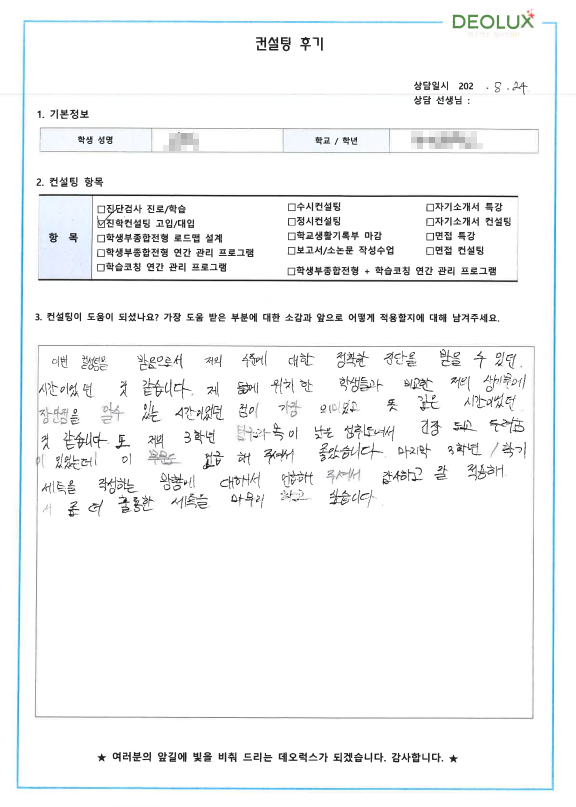 DEOLUX
컨설팅 후기
상담일시 202 . 8 . 24
상담 선생님 :
1. 기본정보
학생 성명
학교 / 학년
2. 컨설팅 항목
항 목
□진단검사 진로/학습 □수시컨설팅 □자기소개서 특강
☑진학컨설팅 고입/대입 □정시컨설팅 □자기소개서 컨설팅
□학생부종합전형 로드맵 설계 □학교생활기록부 마감 □면접 특강
□학생부종합전형 연간 관리 프로그램 □보고서/소논문 작성수업 □면접 컨설팅
□학습코칭 연간 관리 프로그램 □학생부종합전형 + 학습코칭 연간 관리 프로그램
3. 컨설팅이 도움이 되셨나요? 가장 도움 받은 부분에 대한 소감과 앞으로 어떻게 적용할지에 대해 남겨주세요.
이번 컨설팅을 받음으로서 저의 수준에 대한 정확한 진단을 받을 수 있던
시간이었던 것 같습니다. 제 위치한 학생들과 비교한 저의 생기부에
장단점을 알수 있는 시간이었던 점이 가장 의미있고 뜻 깊은 시간이었던
것 같습니다. 또 저의 3학년 이 낮은 성취도여서 걱정 되고
이 있었는데 이 언급 해 주셔서 좋았습니다. 마지막 3학년 1학기
세특을 작성하는 방향에 대해서 언급해 주셔서 감사하고 잘 적용해
서 좀 더 훌륭한 세특을 마무리 하고 싶습니다.
★ 여러분의 앞길에 빛을 비춰 드리는 데오럭스가 되겠습니다. 감사합니다. ★